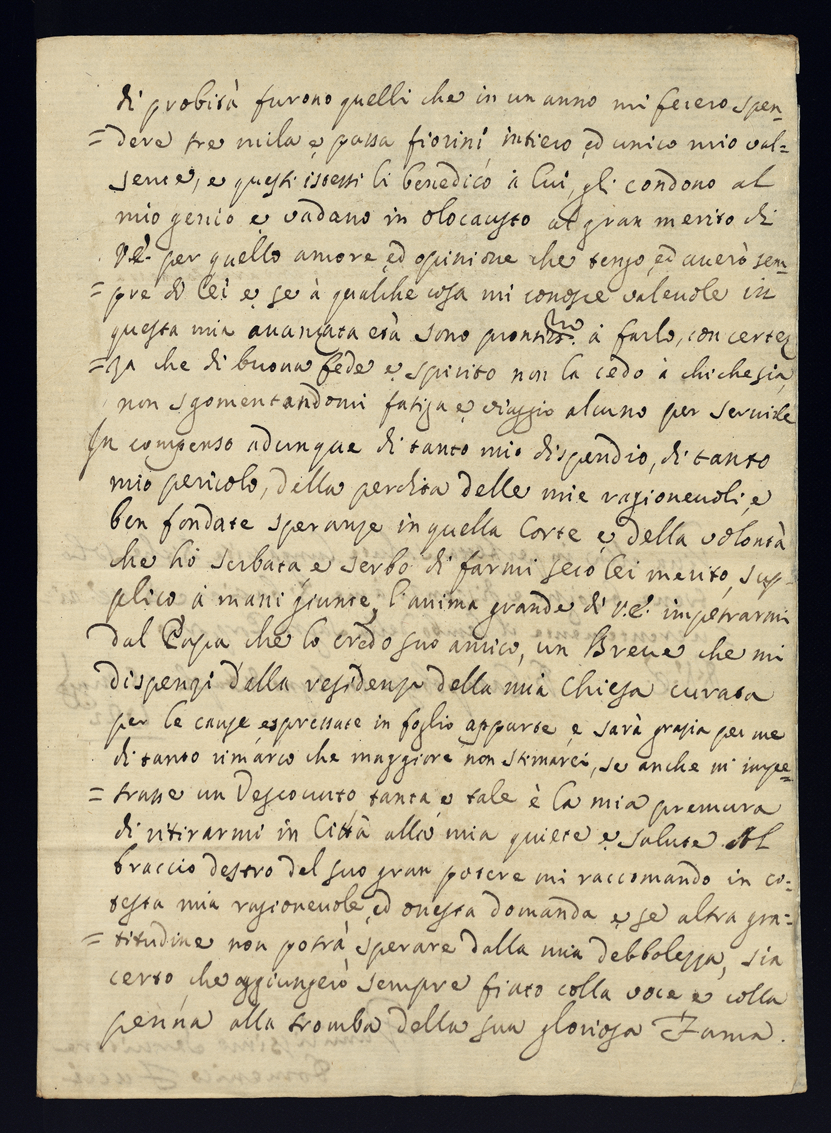 di probità furono quelli che in un anno mi fecero spen¬
= dere tre mila e passa fiorini intiero ed unico mio val=
sente, e questi istessi li benedico à lui, gli condono al
mio genio e vadano in olocausto al gran merito di
V.E. per quello amore ed opinione che tengo, ed auerò sem¬
= pre di lei e se à qualche cosa mi conosce valeuole in
questa mia auanzata età sono prontiss.mo à farlo, con certez
= za che di buona fede e spirito non la cedo à chichesia,
non sgomentandomi fatiga e viaggio alcuno per seruirle
In compenso adunque di tanto mio dispendio, di tanto
mio pericolo, della perdita delle mie ragioneuoli, e
ben fondate speranze in quella Corte e della volontà
che hò serbata e serbo di farmi seco lei merito, sup¬
plico à mani giunte, l'anima grande di V.E. impetrarmi
dal Papa che lo credo suo amico, un Breue che mi
dispenzi dalla residenza della mia Chiesa curata
per le cause espressate in foglio apparte, e sarà grazia per me
di tanto rimarco che maggiore non stimarei, se anche m'impe=
= trasse un Vescouato tanta e tale è la mia premura
di ritirarmi in Città alla mia quiete e salute. Al
braccio destro del suo gran potere mi raccomando in co=
testa mia ragioneuole, ed onesta domanda e se altra gra=
= titudine non potrà sperare dalla mia debbolezza, sia
certo che aggiungerò sempre fiato colla voce e colla
penna alla tromba della sua gloriosa Fama.